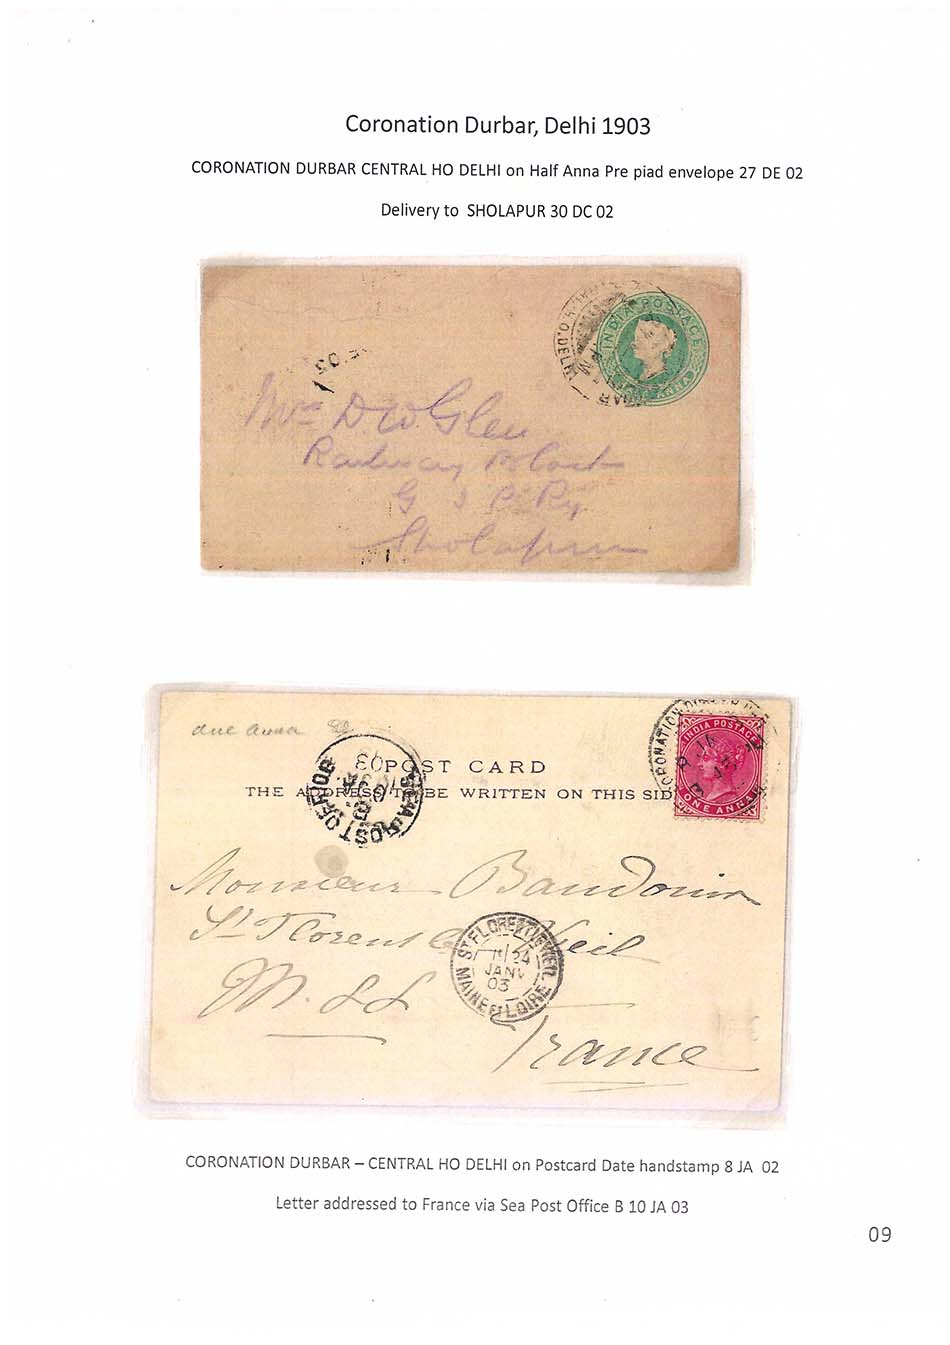 Coronation Durbar, Delhi 1903
CORONATION DURBAR CENTRAL HO DELHI on Half Anna Pre piad envelope 27 DE 02
Delivery to SHOLAPUR 30 DC 02
INDIA POSTAGE
ANNA
03
D. W. Glen
Railway
G I P Ry
Sholapur
one anna
POST CARD
THE ADDRESS TO BE WRITTEN ON THIS SID
INDIA POSTAGE
ONE ANNA
CORONATION
8 JA
SEA POST OFFICE
B
03
Monsieur Baudouin
St Florent
ST FLORENT
24
JANV
03
MAINE ET LOIRE
France
CORONATION DURBAR – CENTRAL HO DELHI on Postcard Date handstamp 8 JA 02
Letter addressed to France via Sea Post Office B 10 JA 03
09